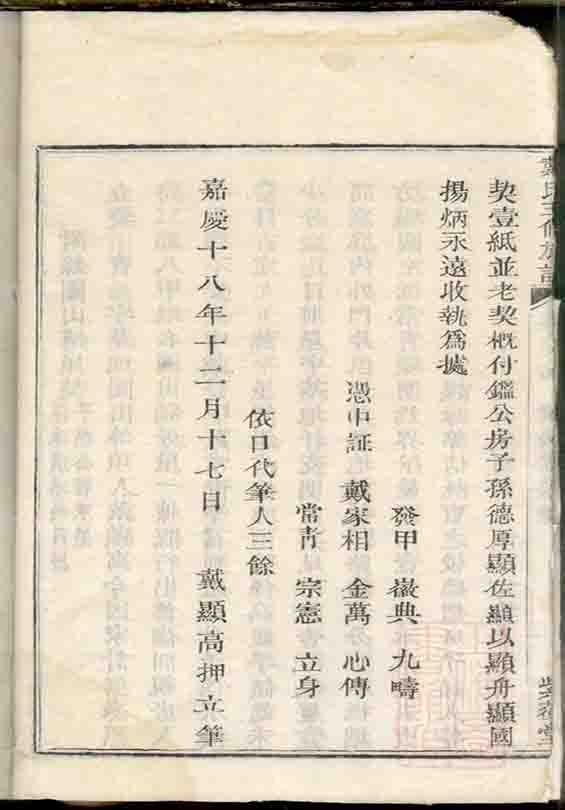 契壹紙並老契概付鑑公房子孫德厚顯佐顯以顯舟顯國
揚炳永遠收執為據
發甲 嶽典 九疇
憑中証 戴家相 金萬 心傳
常青 宗憲 立身
依口代筆人三餘
嘉慶十八年十二月十七日 戴顯高押立筆